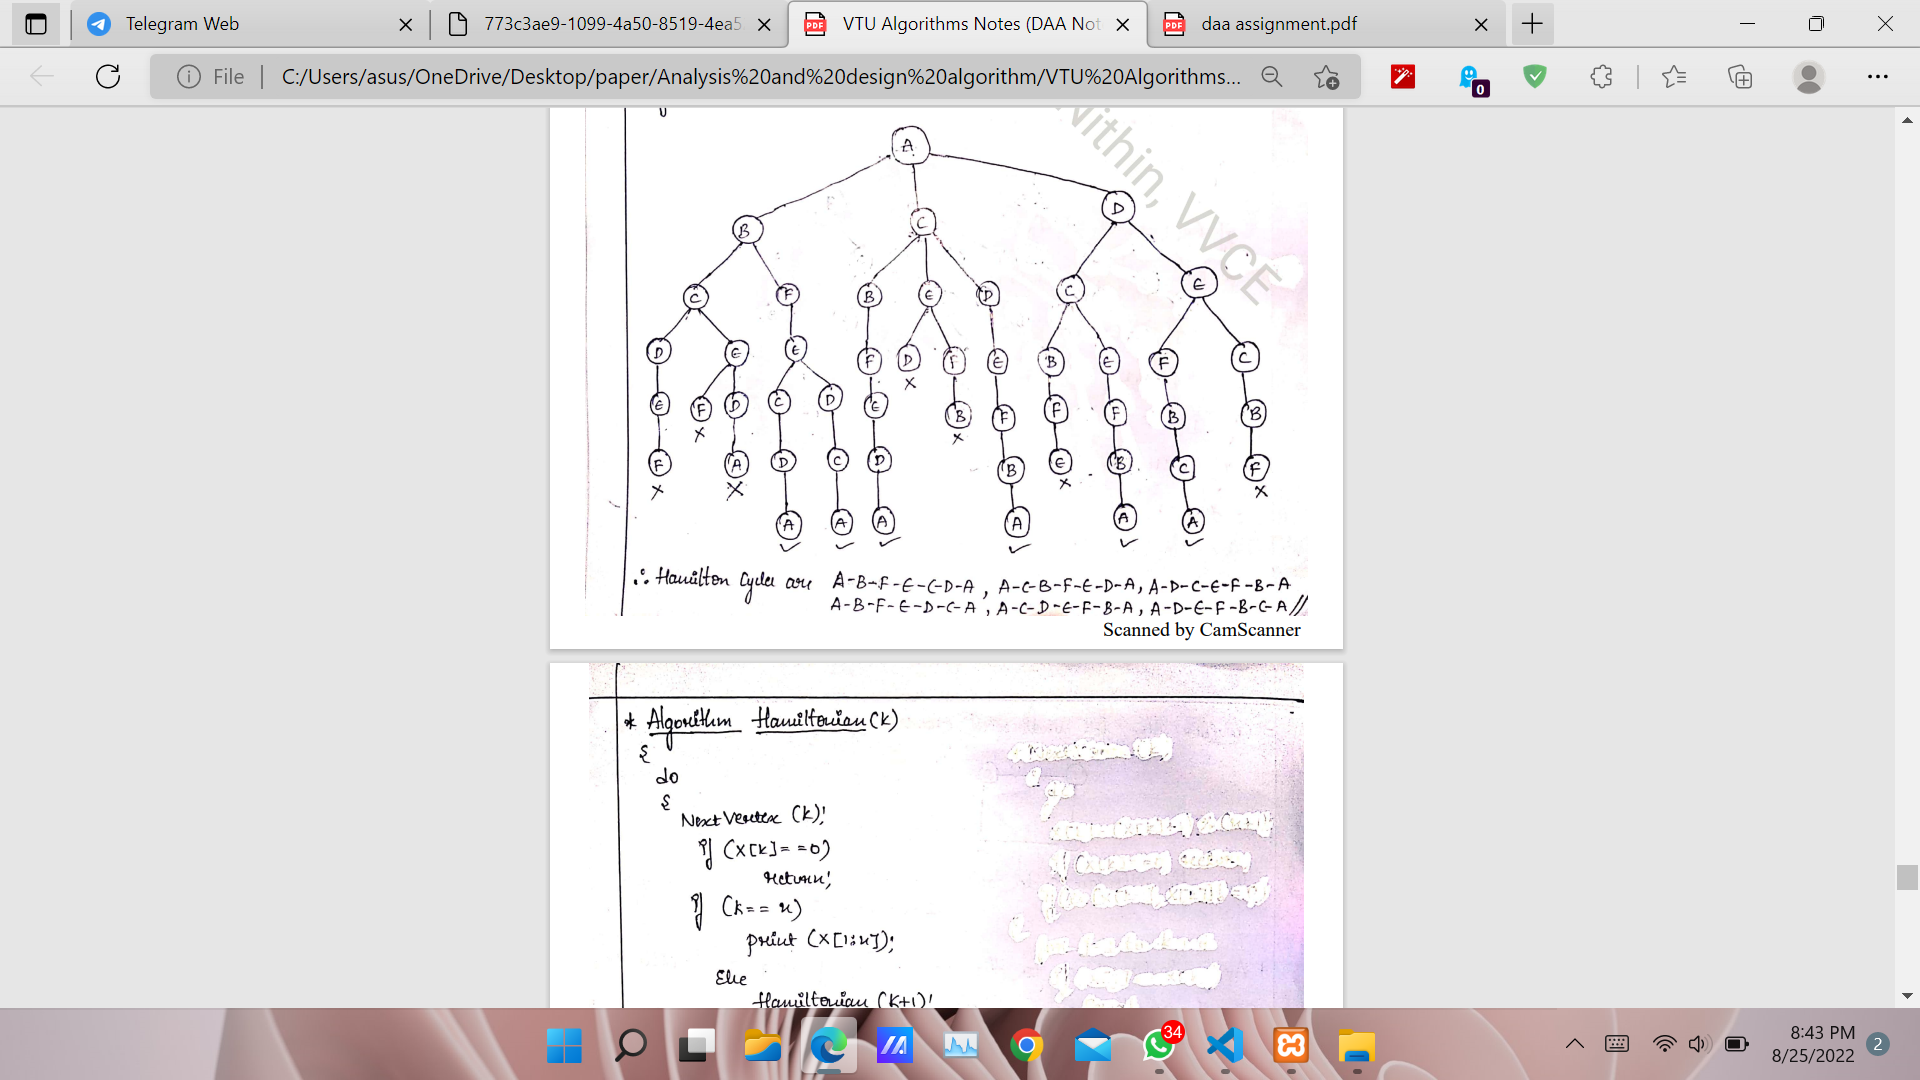 Telegram Web
773c3ae9-1099-4a50-8519-4ea5
VTU Algorithms Notes (DAA Not
daa assignment.pdf
File
C:/Users/asus/OneDrive/Desktop/paper/Analysis%20and%20design%20algorithm/VTU%20Algorithms...
0
Nithin, VVCE
A
B C D
C F B E D C E
D E E F D F E B E F C
E F D C D E B F F F B B
F A D C D B E B C F
A A A A A A
∴ Hamilton Cycles are A-B-F-E-C-D-A, A-C-B-F-E-D-A, A-D-C-E-F-B-A
A-B-F-E-D-C-A, A-C-D-E-F-B-A, A-D-E-F-B-C-A//
Scanned by CamScanner
* Algorithm Hamiltonian (K)
{
do
{
Next Vertex (K);
if (X[K]==0)
return;
if (K==n)
print (X[1:n]);
Else
Hamiltonian (K+1);
34
8:43 PM
8/25/2022
2